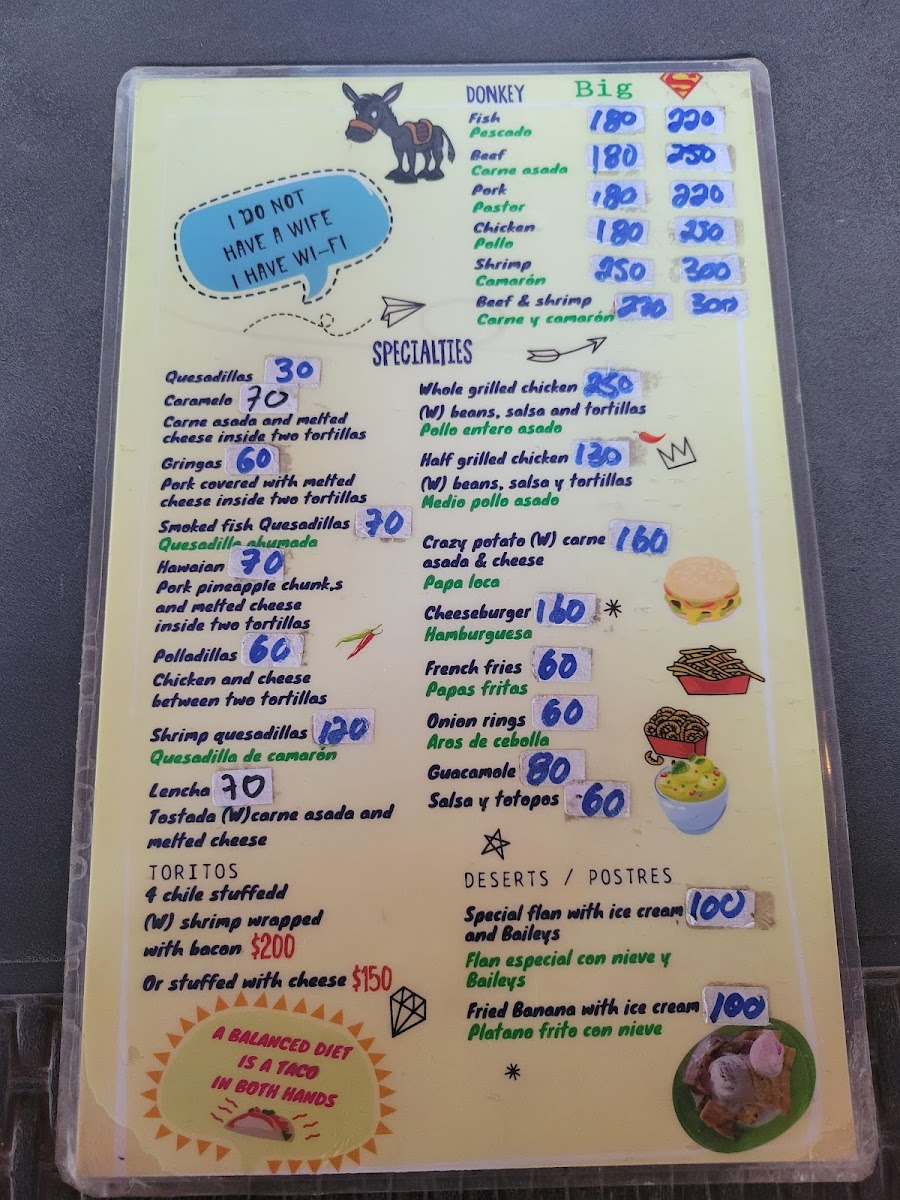 DONKEY Big S
Fish 180 220
Pescado
Beef 180 250
Carne asada
Pork 180 220
Pastor
Chicken 180
Pollo
Shrimp 250 300
Camarón
Beef & shrimp 300
Carne y camarón
I DO NOT
HAVE A WIFE
I HAVE WI-FI
SPECIALTIES
Quesadillas 30
Caramelo 70
Carne asada and melted
cheese inside two tortillas
Gringas 60
Pork covered with melted
cheese inside two tortillas
Smoked fish Quesadillas 70
Quesadilla ahumada
Hawaian 70
Pork pineapple chunk,s
and melted cheese
inside two tortillas
Polladillas 60
Chicken and cheese
between two tortillas
Shrimp quesadillas 120
Quesadilla de camarón
Lencha 70
Tostada (W)carne asada and
melted cheese
Whole grilled chicken 250
(W) beans, salsa and tortillas
Pollo entero asado
Half grilled chicken 130
(W) beans, salsa y tortillas
Medio pollo asado
Crazy potato (W) carne 160
asada & cheese
Papa loca
Cheeseburger 160
Hamburguesa
French fries 60
Papas fritas
Onion rings 60
Aros de cebolla
Guacamole 80
Salsa y totopos 60
TORITOS
4 chile stuffedd
(W) shrimp wrapped
with bacon $200
Or stuffed with cheese $150
A BALANCED DIET
IS A TACO
IN BOTH HANDS
DESERTS / POSTRES
Special flan with ice cream 100
and Baileys
Flan especial con nieve y
Baileys
Fried Banana with ice cream 100
Platano frito con nieve